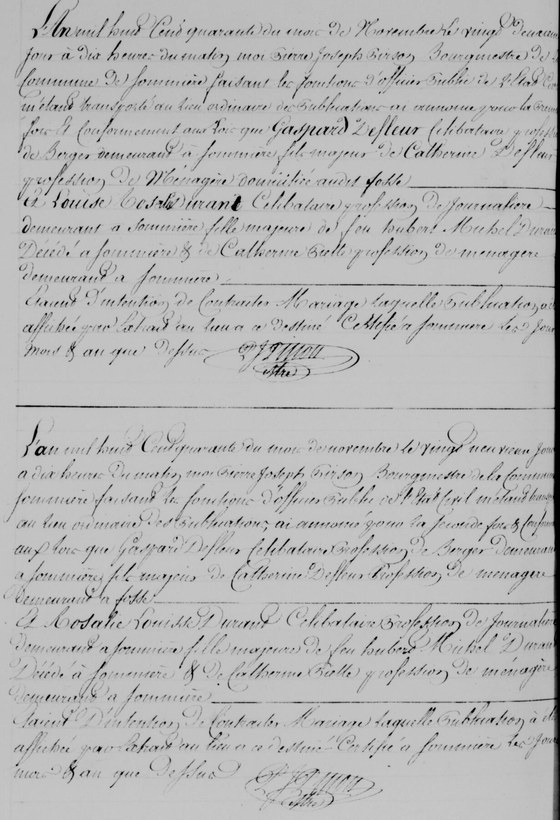 L'An mil huit Cent quarante du mois de Novembre le vingt deuxieme
jour à dix heures du matin, moi Pierre Joseph Pirson Bourgmestre de la
Commune de Sommière faisant les fonctions d'officier Public de l'Etat Civil
m'étant transporté au lieu ordinaire des Publications ai annoncé pour la
fois & Conformement aux lois que Gaspard Defleur Celibataire profession
de Berger demeurant à Sommière fils majeur de Catherine Defleur
profession de Menagère domiciliée audit fosse
Et Louise Durant Celibataire profession de Journalière
demeurant a Sommière fille majeure de feu hubert Michel Durant
Décédé a Sommière & de Catherine Piette profession de menagere
demeurant a Sommiere
Etant D'intention de Contracter Mariage laquelle Publication a été
affichée par Extrait au lieu a ce destiné Certifié a Sommiere les Jour
mois & an que dessus
L'an mil huit Cent quarante du mois de novembre le vingt neuvieme Jour
a dix heures du matin, moi Pierre Joseph Pirson Bourgmestre de la Commune
Sommière faisant les fonctions d'officier Public de l'Etat Civil m'étant transporté
au lieu ordinaire des Publications, ai annoncé pour la seconde fois & Conformement
aux lois que Gaspard Defleur Celibataire Profession de Berger demeurant
a Sommière, fils majeur de Catherine Defleur Profession de menagere
demeurant a fosse
Et Rosalie Louise Durant Celibataire Profession de Journalière
demeurant a Sommière fille majeure de feu hubert Michel Durant
Décédé à Sommière & de Catherine Piette profession de ménagère
demeurant a Sommière
Etant D'intention de Contracter Mariage laquelle Publication à été
affichée par Extrait au lieu a ce destiné Certifié a Sommiere les Jour
mois & an que Dessus